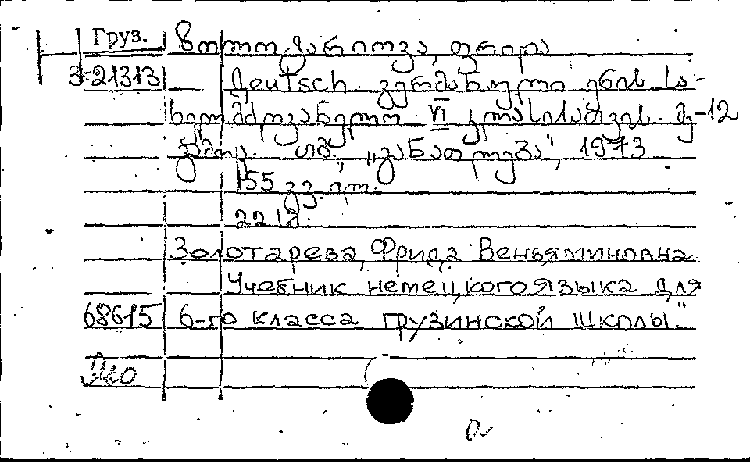 Груз. ზოლოტარიოვა, ფრიდა
3-21313 Deutsch. გერმანული ენის სა-
ხელმძღვანელო VI კლასისათვის. მე-12
გამოც. თბ., „განათლება", 1973
155 გვ.
22 კ.
Золотарева, Фрида Веньяминовна.
Учебник немецкого языка для
68615 6-го класса грузинской школы.